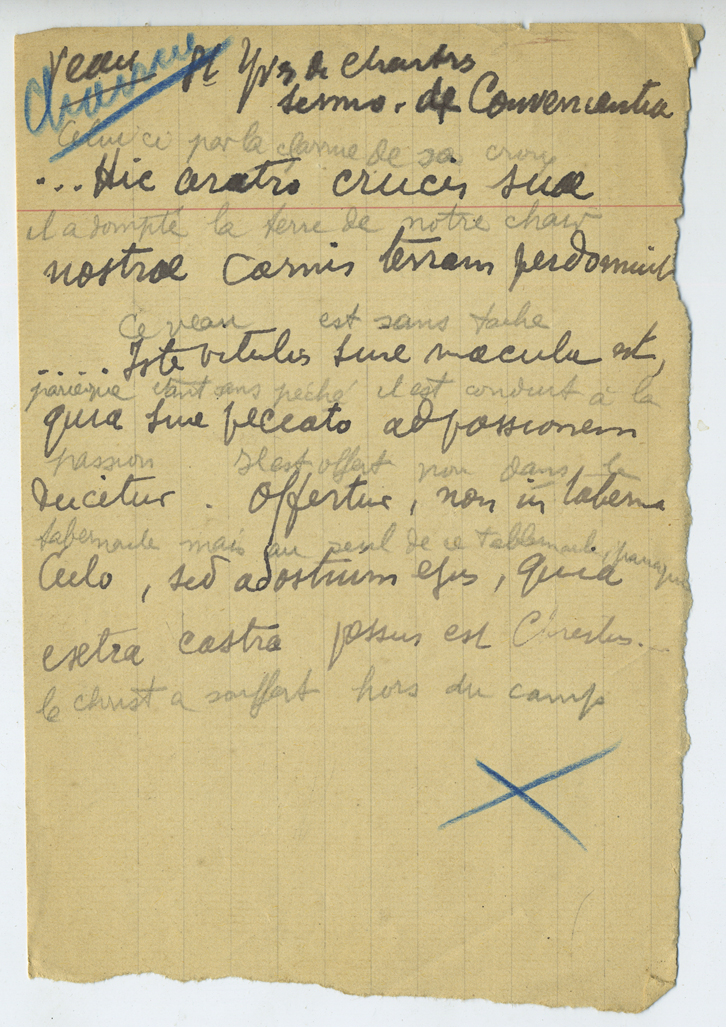 Veau St Yves de Chartres
Charrue
sermo. de Convenientia
Celui ci par la charrue de sa croix
... Hic aratro crucis suae
il a dompté la terre de notre chair
nostrae carnis terram perdomuit
Ce veau est sans tache
.... Iste vitulus sine macula est,
parceque étant sans péché il est conduit à la
quia sine peccato ad passionem
passion Il est offert non dans le
ducitur. Offertur, non in taberna
tabernacle mais au seuil de ce tabernacle, parceque
Culo, sed ad ostium ejus, quia
extra castra passus est Christus...
le christ a souffert hors du camp